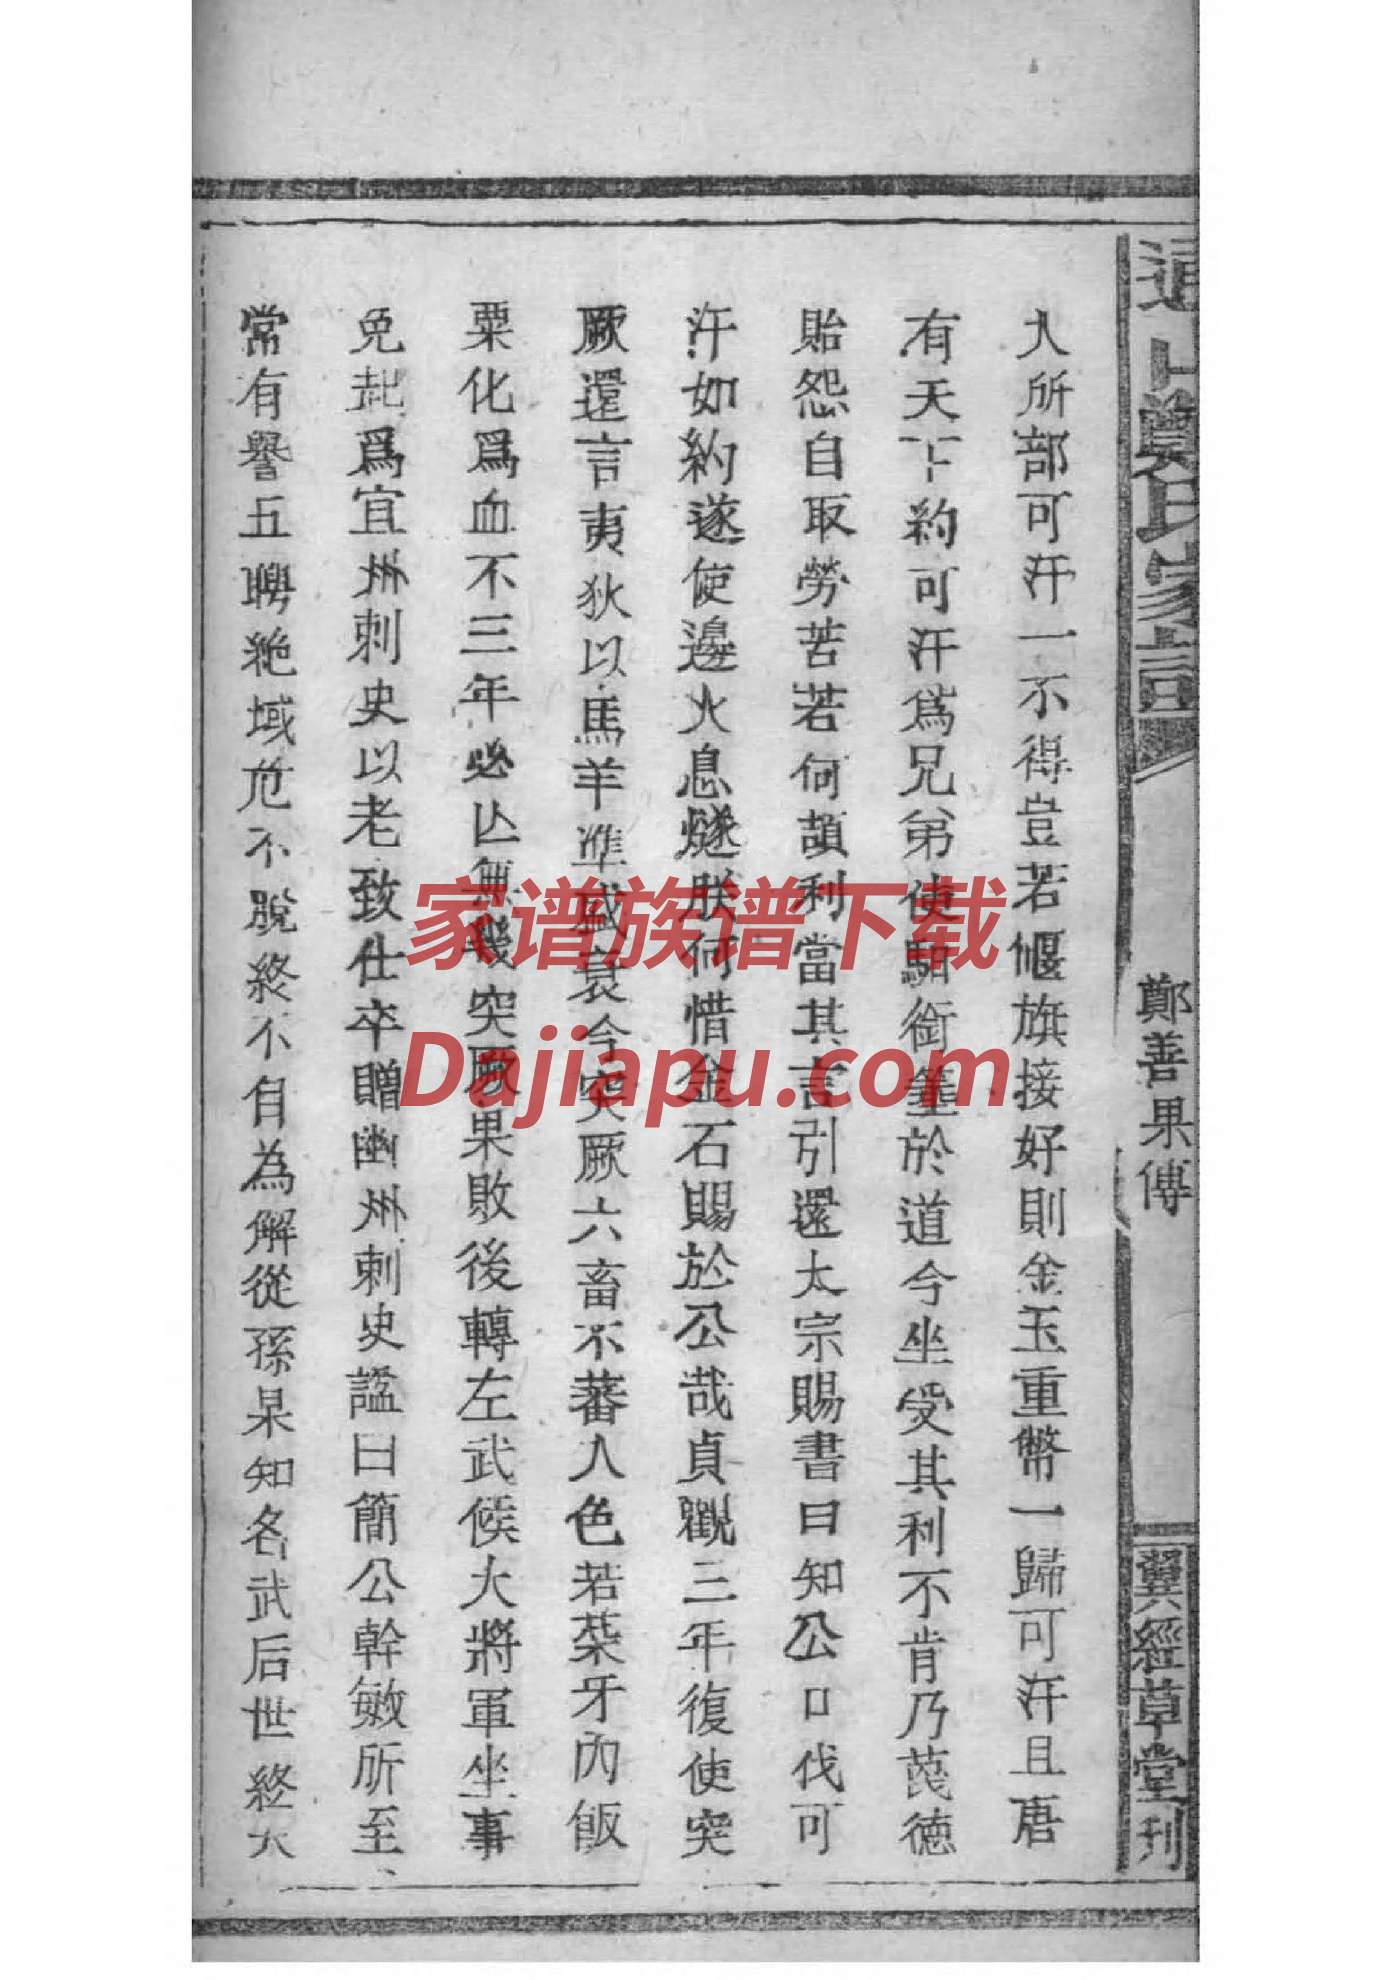 通山鄭氏家譜
鄭善果傳
翼經草堂刊
入所部可汗一不得豈若偃旗接好則金玉重幣一歸可汗且唐
有天下約可汗爲兄弟使馹銜箠於道今坐受其利不肯乃蔑德
貽怨自取勞苦若何頡利當其言引還太宗賜書曰知公口伐可
汗如約遂使邊火息燧朕何惜金石賜於公哉貞觀三年復使突
厥還言夷狄以馬羊準盛衰今突厥六畜不蕃人色若菜牙內飯
粟化爲血不三年必亾無幾突厥果敗後轉左武候大將軍坐事
免起爲宜州刺史以老致仕卒贈幽州刺史諡曰簡公幹敏所至
常有譽五聘絶域危不脫終不自為解從孫杲知名武后世終大
家谱族谱下载
Dajiapu.com